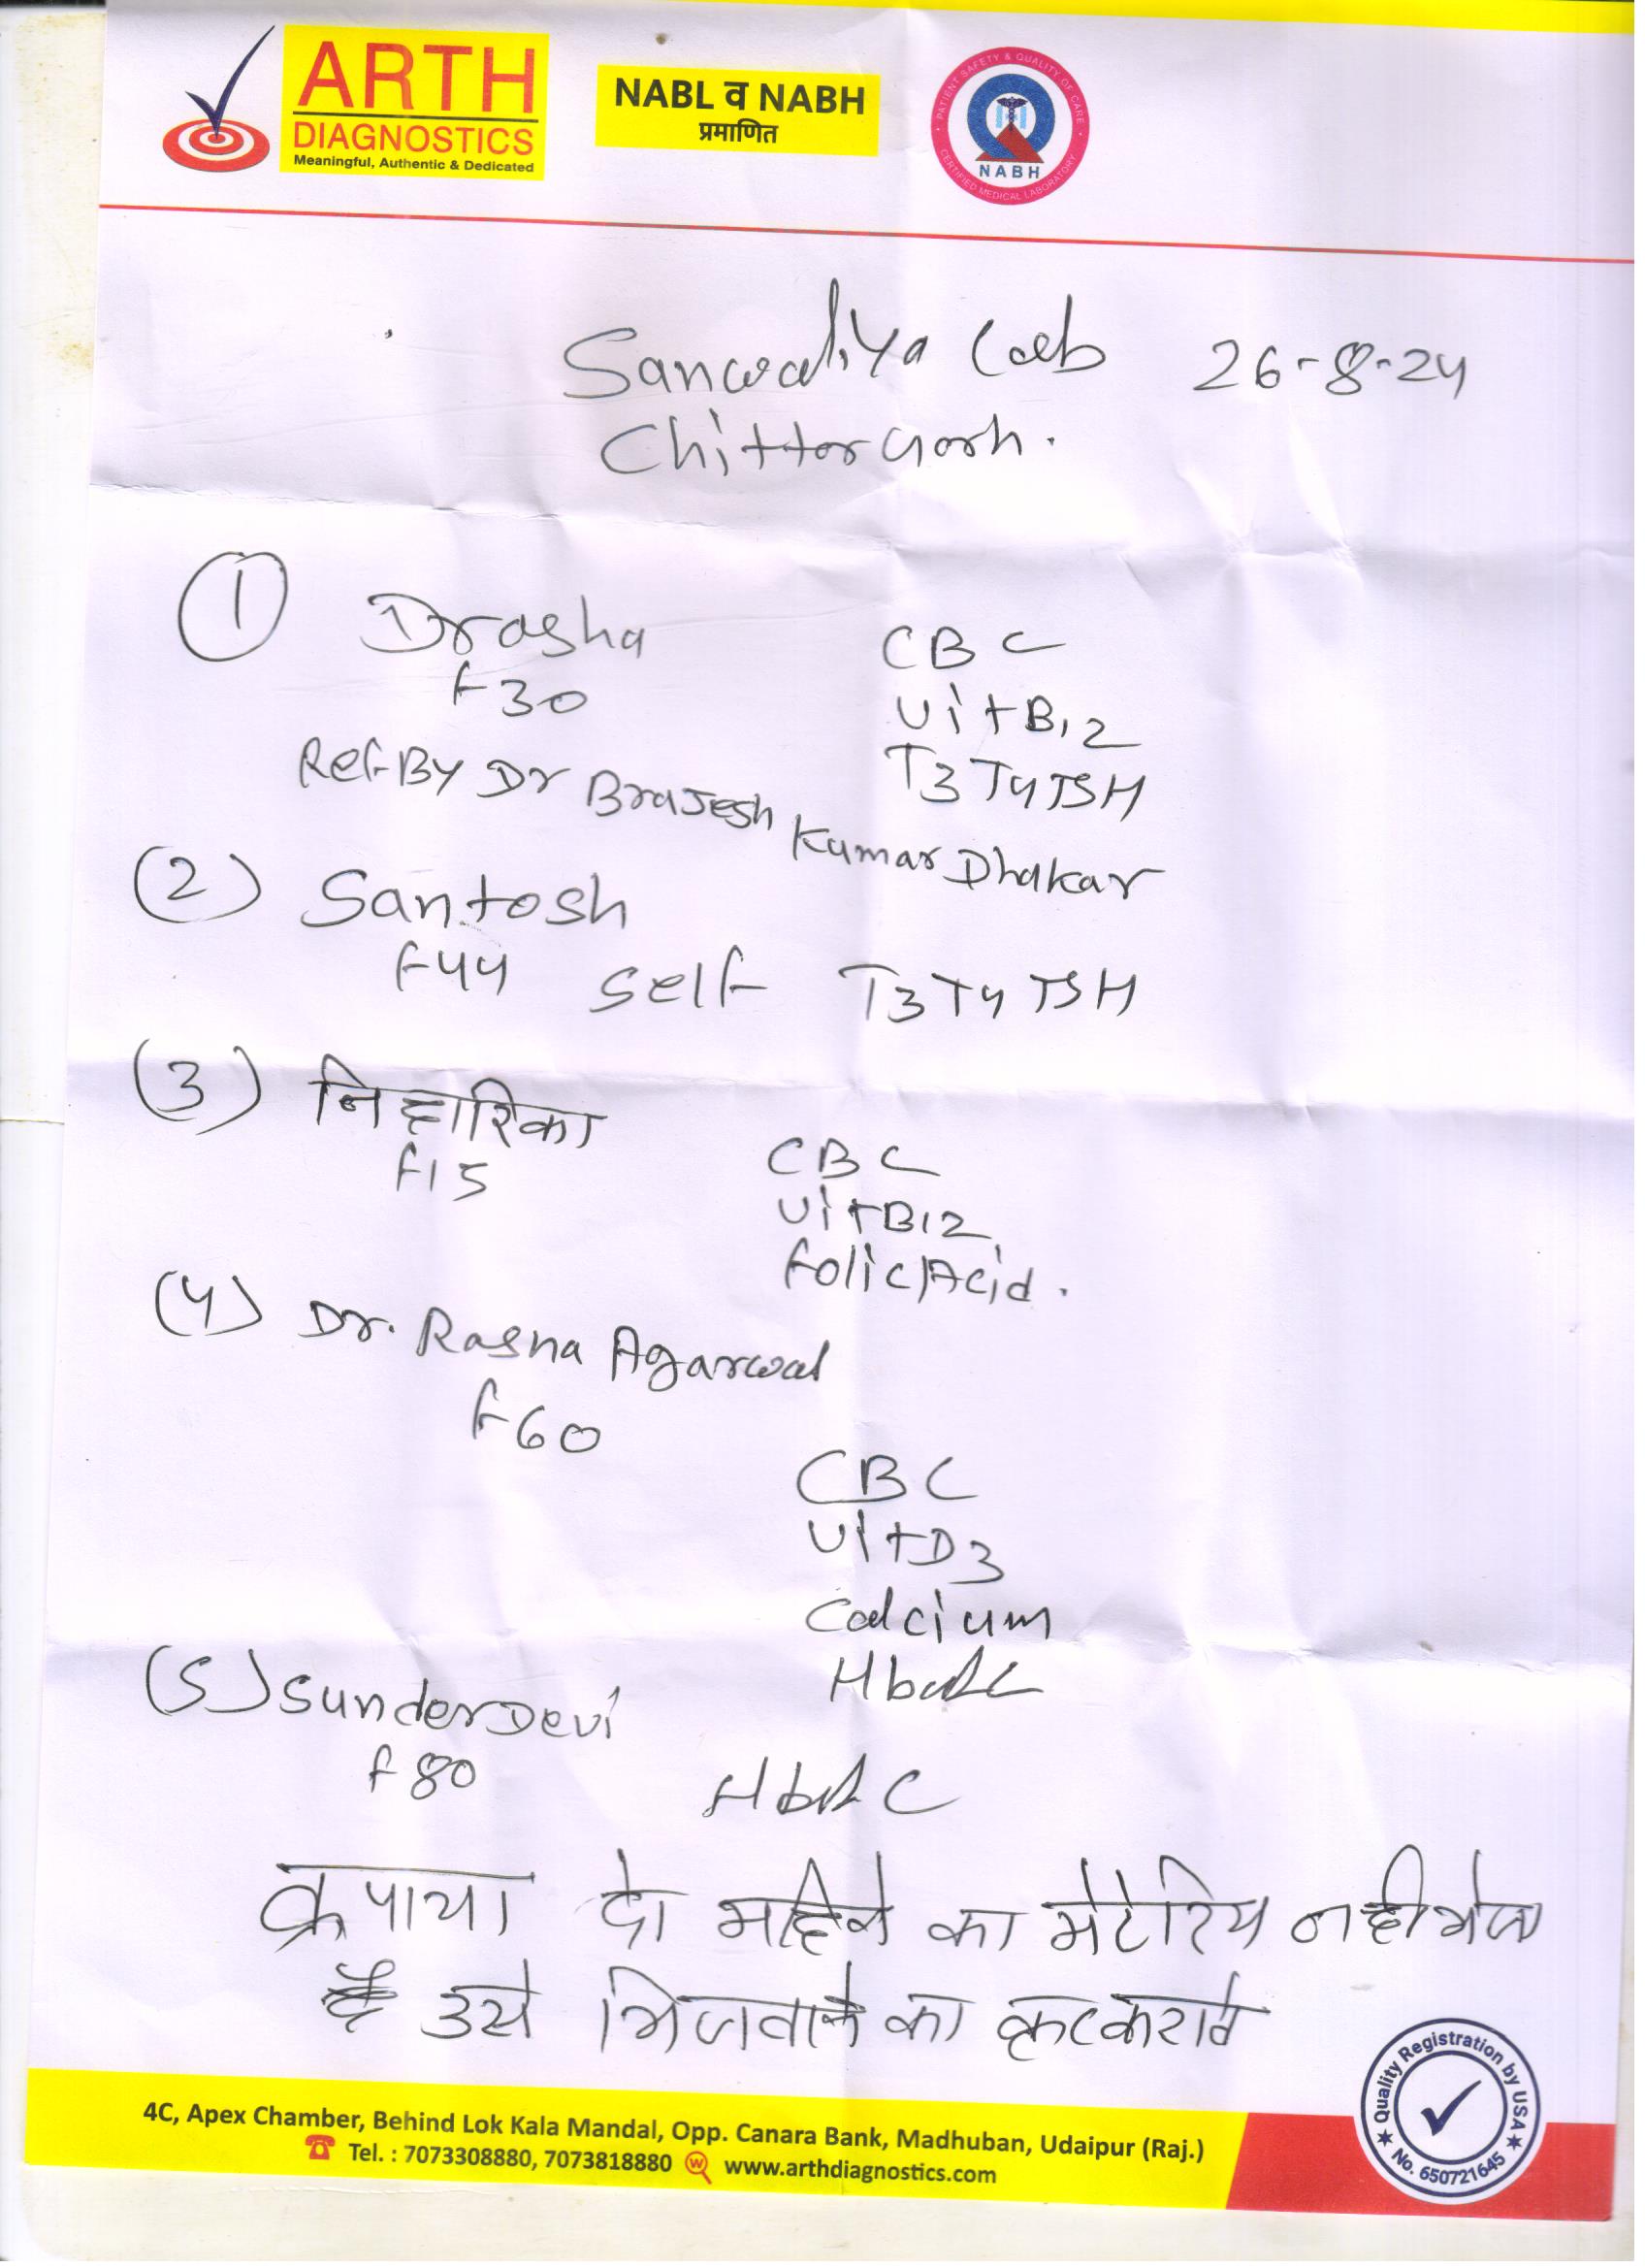 ARTH
DIAGNOSTICS
Meaningful, Authentic & Dedicated
NABL व NABH
प्रमाणित
PATIENT SAFETY & QUALITY OF CARE
NABH
CERTIFIED MEDICAL LABORATORY
Sanwaliya Lab 26-8-24
Chittorgarh.
1 Drasha CBC
F30 VitB12
Ref-By Dr Brajesh Kumar Dhakar T3T4TSH
(2) Santosh
F44 Self T3T4TSH
(3) निहारिका
F15 CBC
VitB12
Folic Acid.
(4) Dr. Rasna Agarwal
F60
CBC
VitD3
Calcium
HbA1C
(5) SunderDevi
F80 HbA1C
क्रपाया दो महिने का मेटेरिय नही भेजा
है उसे भिजवाने का करावे
Quality Registration by USA
No. 650721645
4C, Apex Chamber, Behind Lok Kala Mandal, Opp. Canara Bank, Madhuban, Udaipur (Raj.)
Tel. : 7073308880, 7073818880 www.arthdiagnostics.com